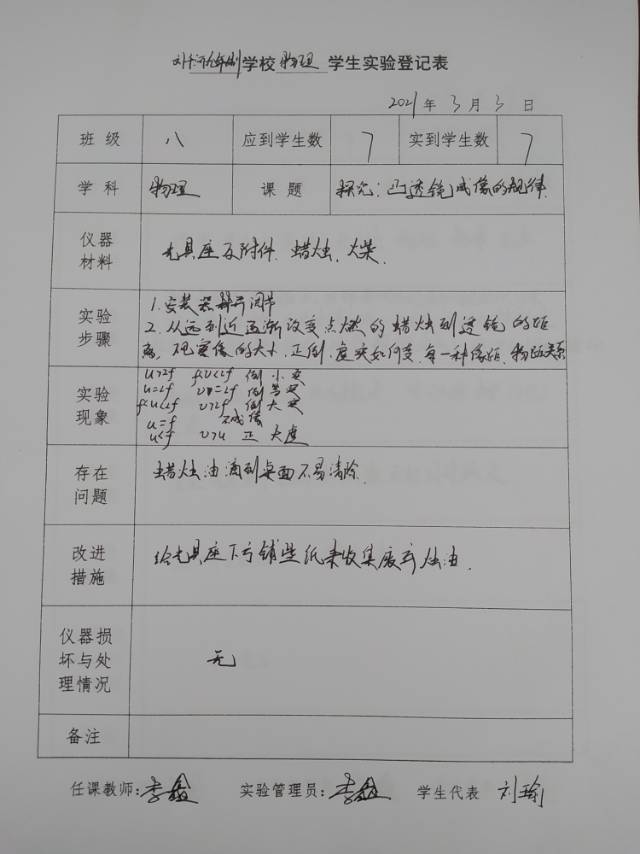 学校 物理 学生实验登记表
2021 年 3 月 3 日
班 级 八 应到学生数 7 实到学生数 7
学 科 物理 课 题 探究:凸透镜成像的规律
仪器 材料 光具座及附件. 蜡烛、火柴.
实验 步骤 1.安装器器并调节
2.从远到近逐渐改变点燃的蜡烛到透镜的距
离,观察像的大小,正倒,虚实如何变,每一种像距.物距关系
实验 现象 u>2f f<v<2f 倒 小 实
u=2f v=2f 倒 等 实
f<u<2f v>2f 倒 大 实
u=f 不成像
u<f v>u 正 大 虚
存在 问题 蜡烛油滴到桌面不易清除.
改进 措施 给光具座下方铺些纸来收集废弃烛油.
仪器损 坏与处 理情况 无
备注
任课教师:李鑫 实验管理员:李鑫 学生代表 刘瑜